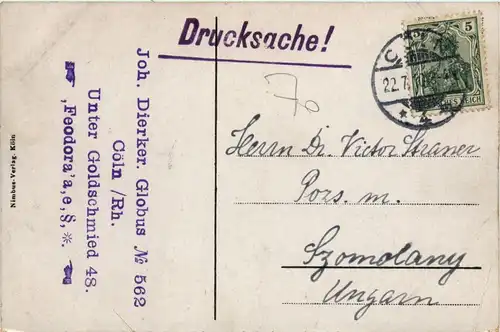 Drucksache!
5
22.7
Joh. Dierker. Globus № 562
Cöln /Rh.
Unter Goldschmied 48.
☛ „Feodora'a,e,§,⁜. ☚
Nimbus-Verlag, Köln
Herrn Dr. Victor Straner
Pozs. m.
Szomolany
Ungarn